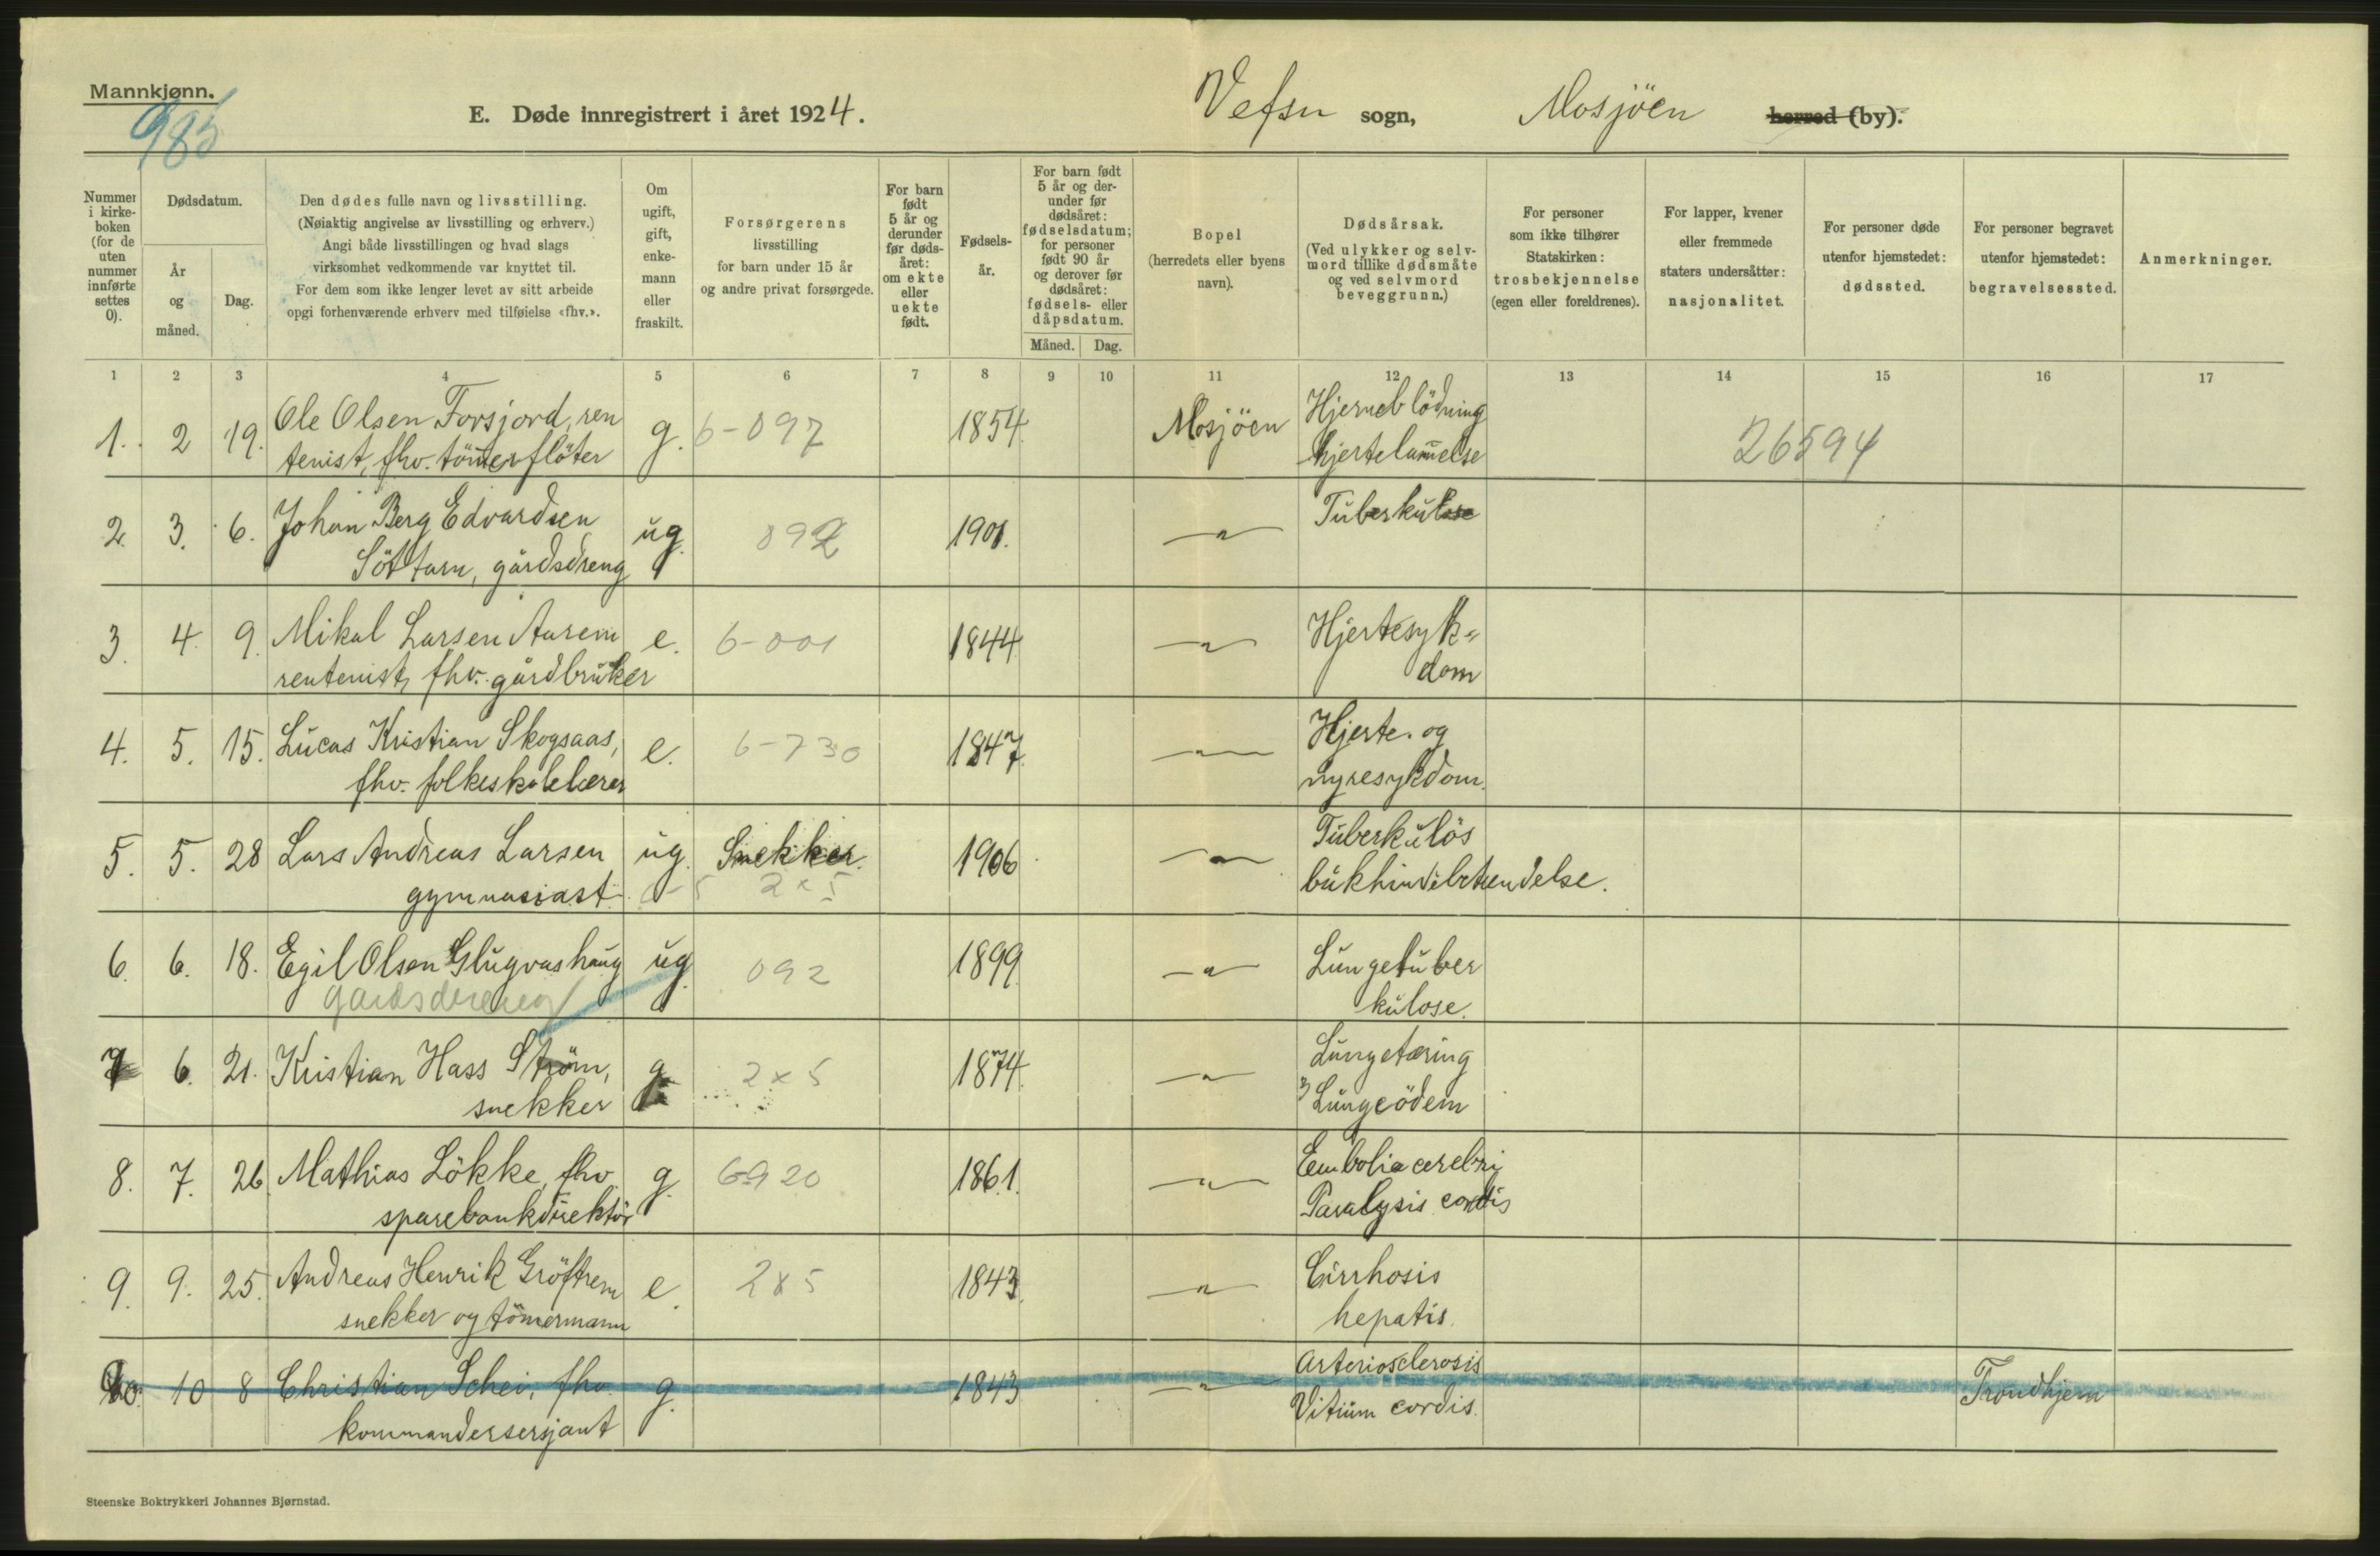 Mannkjønn.
985
E. Døde innregistrert i året 1924.
Vefsn sogn,
Mosjöen herred (by).
Nummer i kirke-boken (for de uten nummer innførte settes 0).
Dødsdatum.
År og måned.
Dag.
Den dødes fulle navn og livsstilling.
(Nøiaktig angivelse av livsstilling og erhverv.)
Angi både livsstillingen og hvad slags
virksomhet vedkommende var knyttet til.
For dem som ikke lenger levet av sitt arbeide
opgi forhenværende erhverv med tilføielse «fhv.».
Om ugift, gift, enke-mann eller fraskilt.
Forsørgerens
livsstilling
for barn under 15 år
og andre privat forsørgede.
For barn født 5 år og derunder før døds-året: om ekte eller uekte født.
Fødsels-år.
For barn født 5 år og der-under før dødsåret: fødselsdatum; for personer født 90 år og derover før dødsåret: fødsels- eller dåpsdatum.
Måned. Dag.
Bopel
(herredets eller byens
navn).
Dødsårsak.
(Ved ulykker og selv-
mord tillike dødsmåte
og ved selvmord
beveggrunn.)
For personer
som ikke tilhører
Statskirken:
trosbekjennelse
(egen eller foreldrenes).
For lapper, kvener
eller fremmede
staters undersåtter:
nasjonalitet.
For personer døde
utenfor hjemstedet:
dødssted.
For personer begravet
utenfor hjemstedet:
begravelsessted.
Anmerkninger.
1 2 3 4 5 6 7 8 9 10 11 12 13 14 15 16 17
1. 2 19. Ole Olsen Forsjord, ren g. 6-097 1854. Mosjöen Hjerneblödning
tenist, fhv. tömerflöter hjertelam̄else 26594
2. 3. 6. Johan Berg Edvardsen ug. 092 1901. -„- Tuberkulose
Söttarn, gårdsdreng
3. 4. 9. Mikal Larsen Aarem e. 6-001 1844. -„- Hjertesyk-
rentenist, fhv. gårdbruker dom
4. 5. 15. Lucas Kristian Skogsaas, e. 6-730 1847. -„- Hjerte- og
fhv. folkeskolelærer nyresykdom.
5. 5. 28 Lars Andreas Larsen ug. Snekker. 1906 -„- Tuberkulös
gymnasiast 2x5 bukhindebetændelse.
6. 6. 18. Egil Olsen Glugvashaug ug. 092 1899. -„- Lungetuber
gardsdreng kulose.
7 6. 21. Kristian Hass Ström, g. 2x5 1874. -„- Lungetæring
snekker Lungeödem
8. 7. 26. Mathias Lökke, fhv. g. 6-920 1861. -„- Embolia cerebri
sparebankdirektör Paralysis cordis
9. 9. 25. Andreas Henrik Gröftrem e. 2x5 1843. -„- Cirrhosis
snekker og tömermann hepatis.
10. 10 8 Christian Schei, fhv. g. 1843 -„- Arteriosclerosis Trondhjem
kommandersersjant Vitium cordis.
Steenske Boktrykkeri Johannes Bjørnstad.